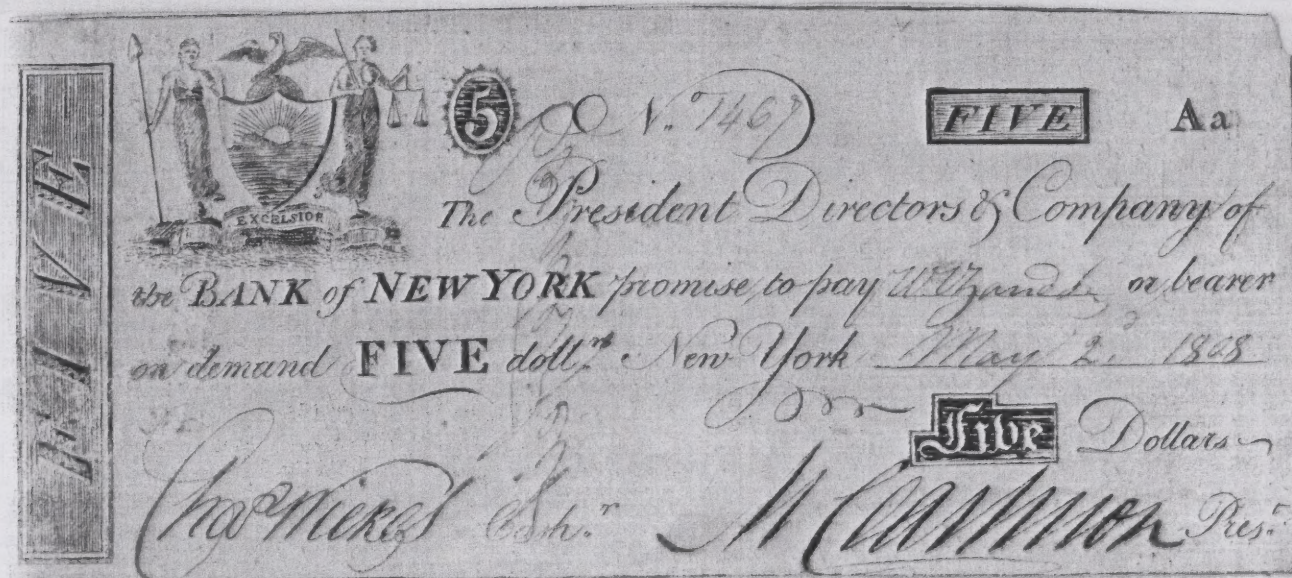 FIVE
EXCELSIOR
5 No. 7467 FIVE Aa
The President Directors & Company of
the BANK of NEW YORK promise to pay or bearer
on demand FIVE doll.rs New York May 2d 1808
Five Dollars
Chas Wickes Cash.r Pres.t